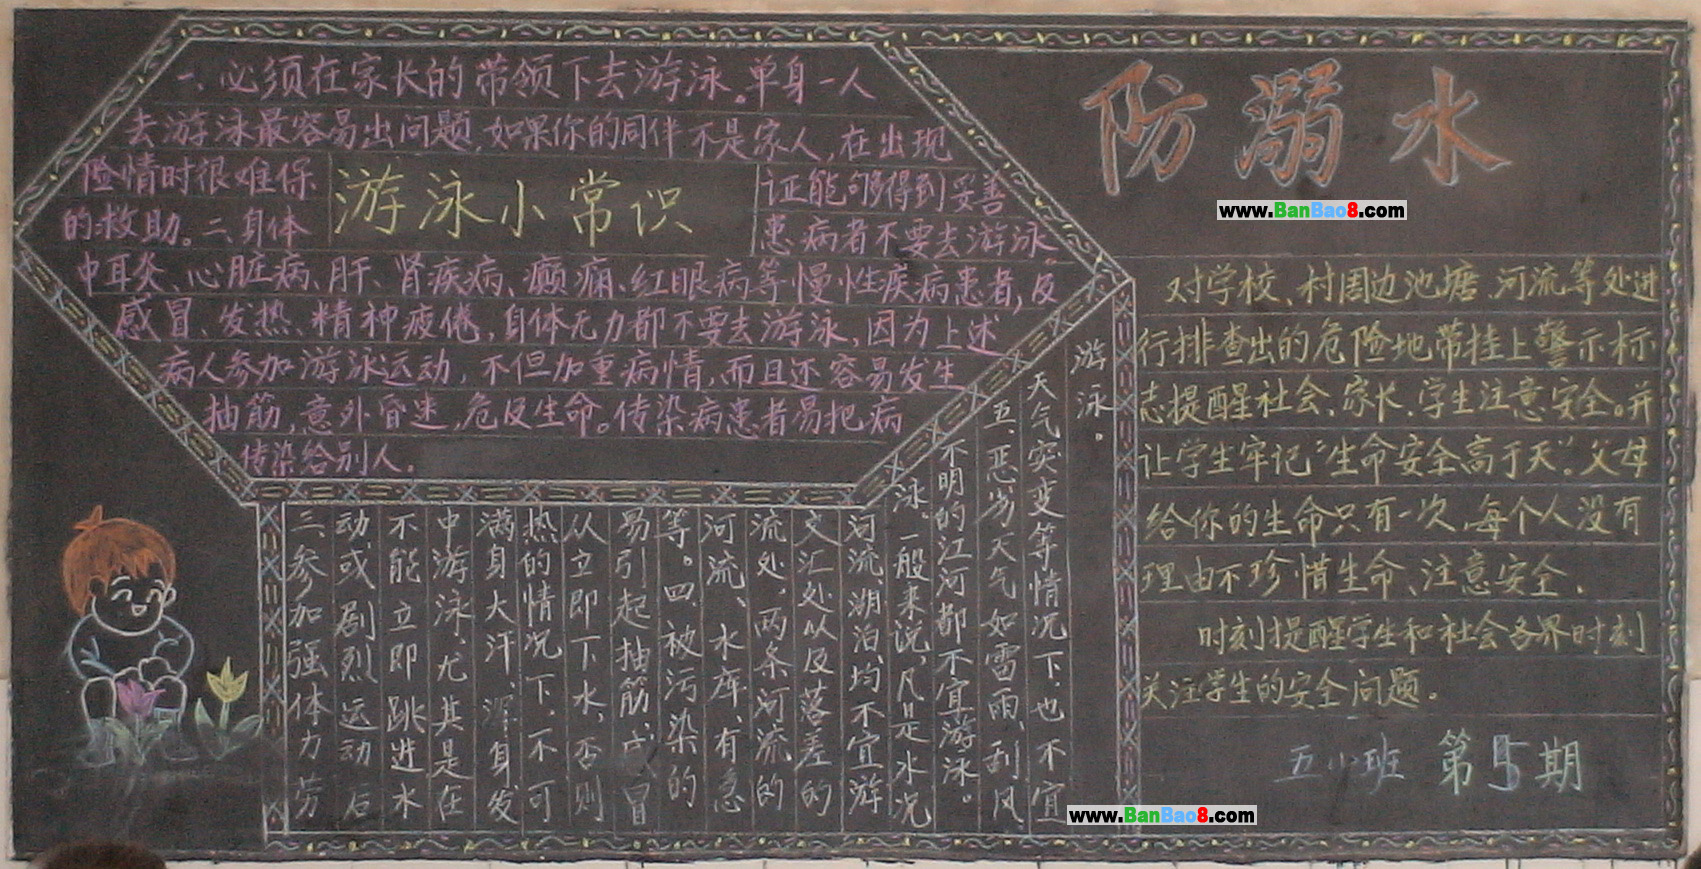 防溺水
www.BanBao8.com
游泳小常识
一、必须在家长的带领下去游泳。单身一人
去游泳最容易出问题,如果你的同伴不是家人,在出现
险情时很难保证能够得到妥善
的救助。二、身体患病者不要去游泳
中耳炎、心脏病、肝、肾疾病、癫痫、红眼病等慢性疾病患者,及
感冒、发热、精神疲倦,身体无力都不要去游泳,因为上述
病人参加游泳运动,不但加重病情,而且还容易发生
抽筋,意外昏迷,危及生命。传染病患者易把病
传染给别人。
三、参加强体力劳
动或剧烈运动后
不能立即跳进水
中游泳、尤其是在
满身大汗,浑身发
热的情况下,不可
从立即下水,否则
易引起抽筋,感冒
等。四、被污染的
河流、水库,有急
流处,两条河流的
交汇处以及落差的
河流湖泊,均不宜游
泳。一般来说,凡是水况
不明的江河都不宜游泳。
五、恶劣天气如雷雨,刮风
天气突变等情况下,也不宜
游泳。
对学校、村周边池塘、河流等处进
行排查出的危险地带挂上警示标
志提醒社会、家长、学生注意安全。并
让学生牢记“生命安全高于天”。父母
给你的生命只有一次,每个人没有
理由不珍惜生命、注意安全。
时刻提醒学生和社会各界时刻
关注学生的安全问题。
五小班 第5期
www.BanBao8.com